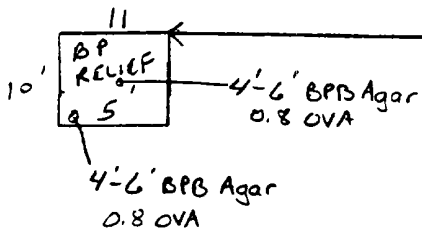 11
BP
RELIEF
10'
5'
4'-6' BPB Agar
0.8 OVA
4'-6' BPB Agar
0.8 OVA